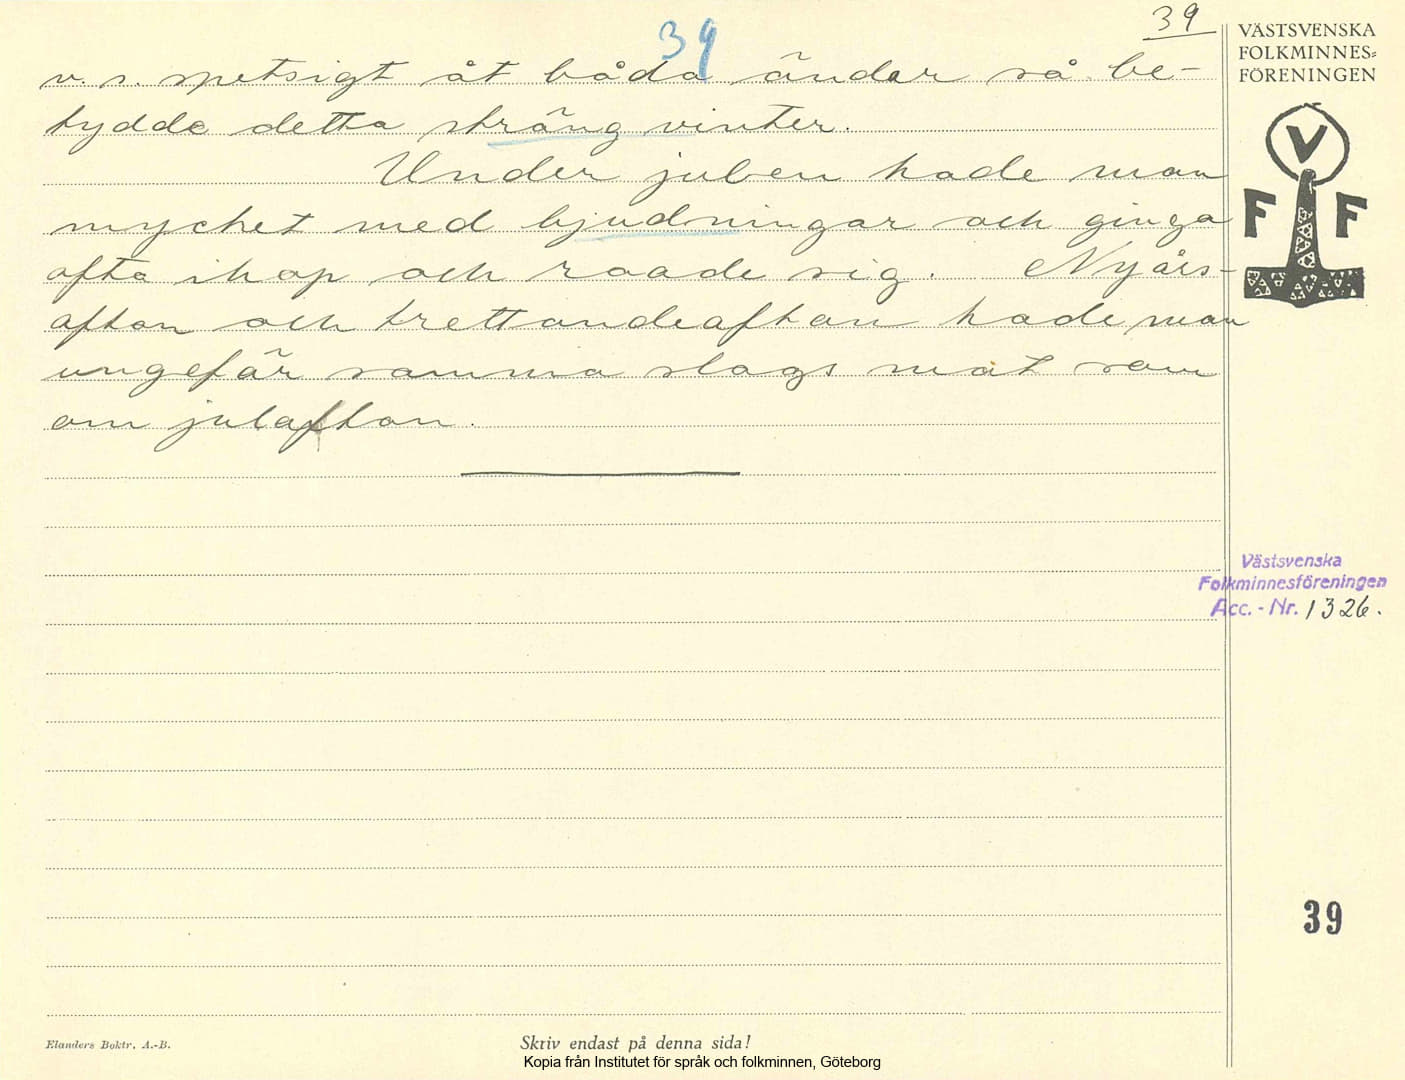 39
39
v. s. spetsigt åt båda änder så be-
tydde detta sträng vinter.
Under julen hade man
mycket med bjudningar och ginga
ofta ihop och roade sig. Nyårs-
afton och trettondeaftan hade man
ungefär samma slags mat som
om julafton.
VÄSTSVENSKA
FOLKMINNES=
FÖRENINGEN
V
F F
Västsvenska
Folkminnesföreningen
Acc. - Nr. 1326.
39
Elanders Boktr. A.-B.
Skriv endast på denna sida!
Kopia från Institutet för språk och folkminnen, Göteborg